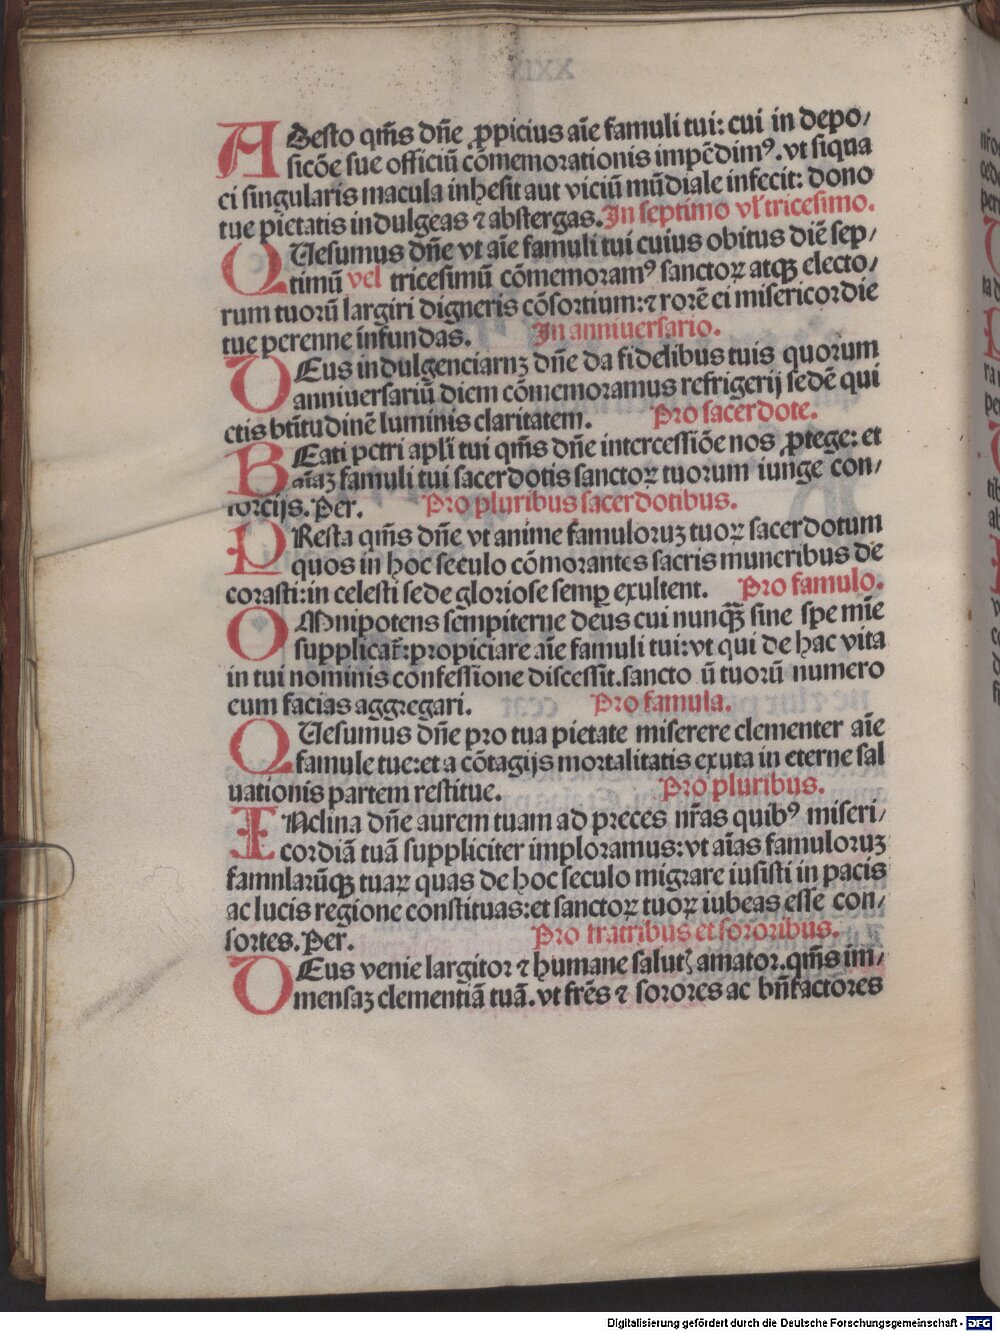 ADesto qm̄s dn̄e ꝓpicius aīe famuli tui: cui in depo/
sicōe sue officiū cōmemorationis impēdimꝰ. vt siqua
ci singularis macula inhesit aut viciū mūdiale infecit: dono
tue pietatis indulgeas ⁊ abstergas. In septimo vl' tricesimo.
QUesumus dn̄e vt aīe famuli tui cuius obitus diē sep/
timū vel tricesimū cōmemoramꝰ sanctoꝝ atqꝫ electo/
rum tuorū largiri digneris cōsortium: ⁊ rorē ei misericordie
tue perenne infundas. In anniuersario.
DEus indulgenciarnꝫ dn̄e da fidelibus tuis quorum
anniuersariū diem cōmemoramus refrigerij sedē qui
etis bt̄itudinē luminis claritatem. Pro sacerdote.
BEati petri apl̄i tui qm̄s dn̄e intercessiōe nos ꝓtege: et
aīaꝫ famuli tui sacerdotis sanctoꝝ tuorum iunge con/
sorcijs. Per. Pro pluribus sacerdotibus.
PResta qm̄s dn̄e vt anime famuloruꝫ tuoꝝ sacerdotum
quos in hoc seculo cōmorantes sacris muneribus de
corasti: in celesti sede gloriose semꝑ exultent. Pro famulo.
OMnipotens sempiterne deus cui nunqꝫ̄ sine spe mīe
supplicat̄: propiciare aīe famuli tui: vt qui de hac vita
in tui nominis confessione discessit. sancto ū tuorū numero
eum facias aggregari. Pro famula.
QUesumus dn̄e pro tua pietate miserere clementer aīe
famule tue: et a cōtagijs mortalitatis exuta in eterne sal
uationis partem restitue. Pro pluribus.
INclina dn̄e aurem tuam ad preces nr̄as quibꝰ miseri/
cordiā tuā suppliciter imploramus: vt aīas famuloruꝫ
famnlarūqꝫ tuaꝝ quas de hoc seculo migrare iusisti in pacis
ac lucis regione constituas: et sanctoꝝ tuoꝝ iubeas esse con-
sortes. Per. Pro fratribus et sororibus.
DEus venie largitor ⁊ humane salutꝭ amator. qm̄s im/
mensaꝫ clementiā tuā. vt fr̄es ⁊ sorores ac bn̄factores
Digitalisierung gefördert durch die Deutsche Forschungsgemeinschaft - DFG